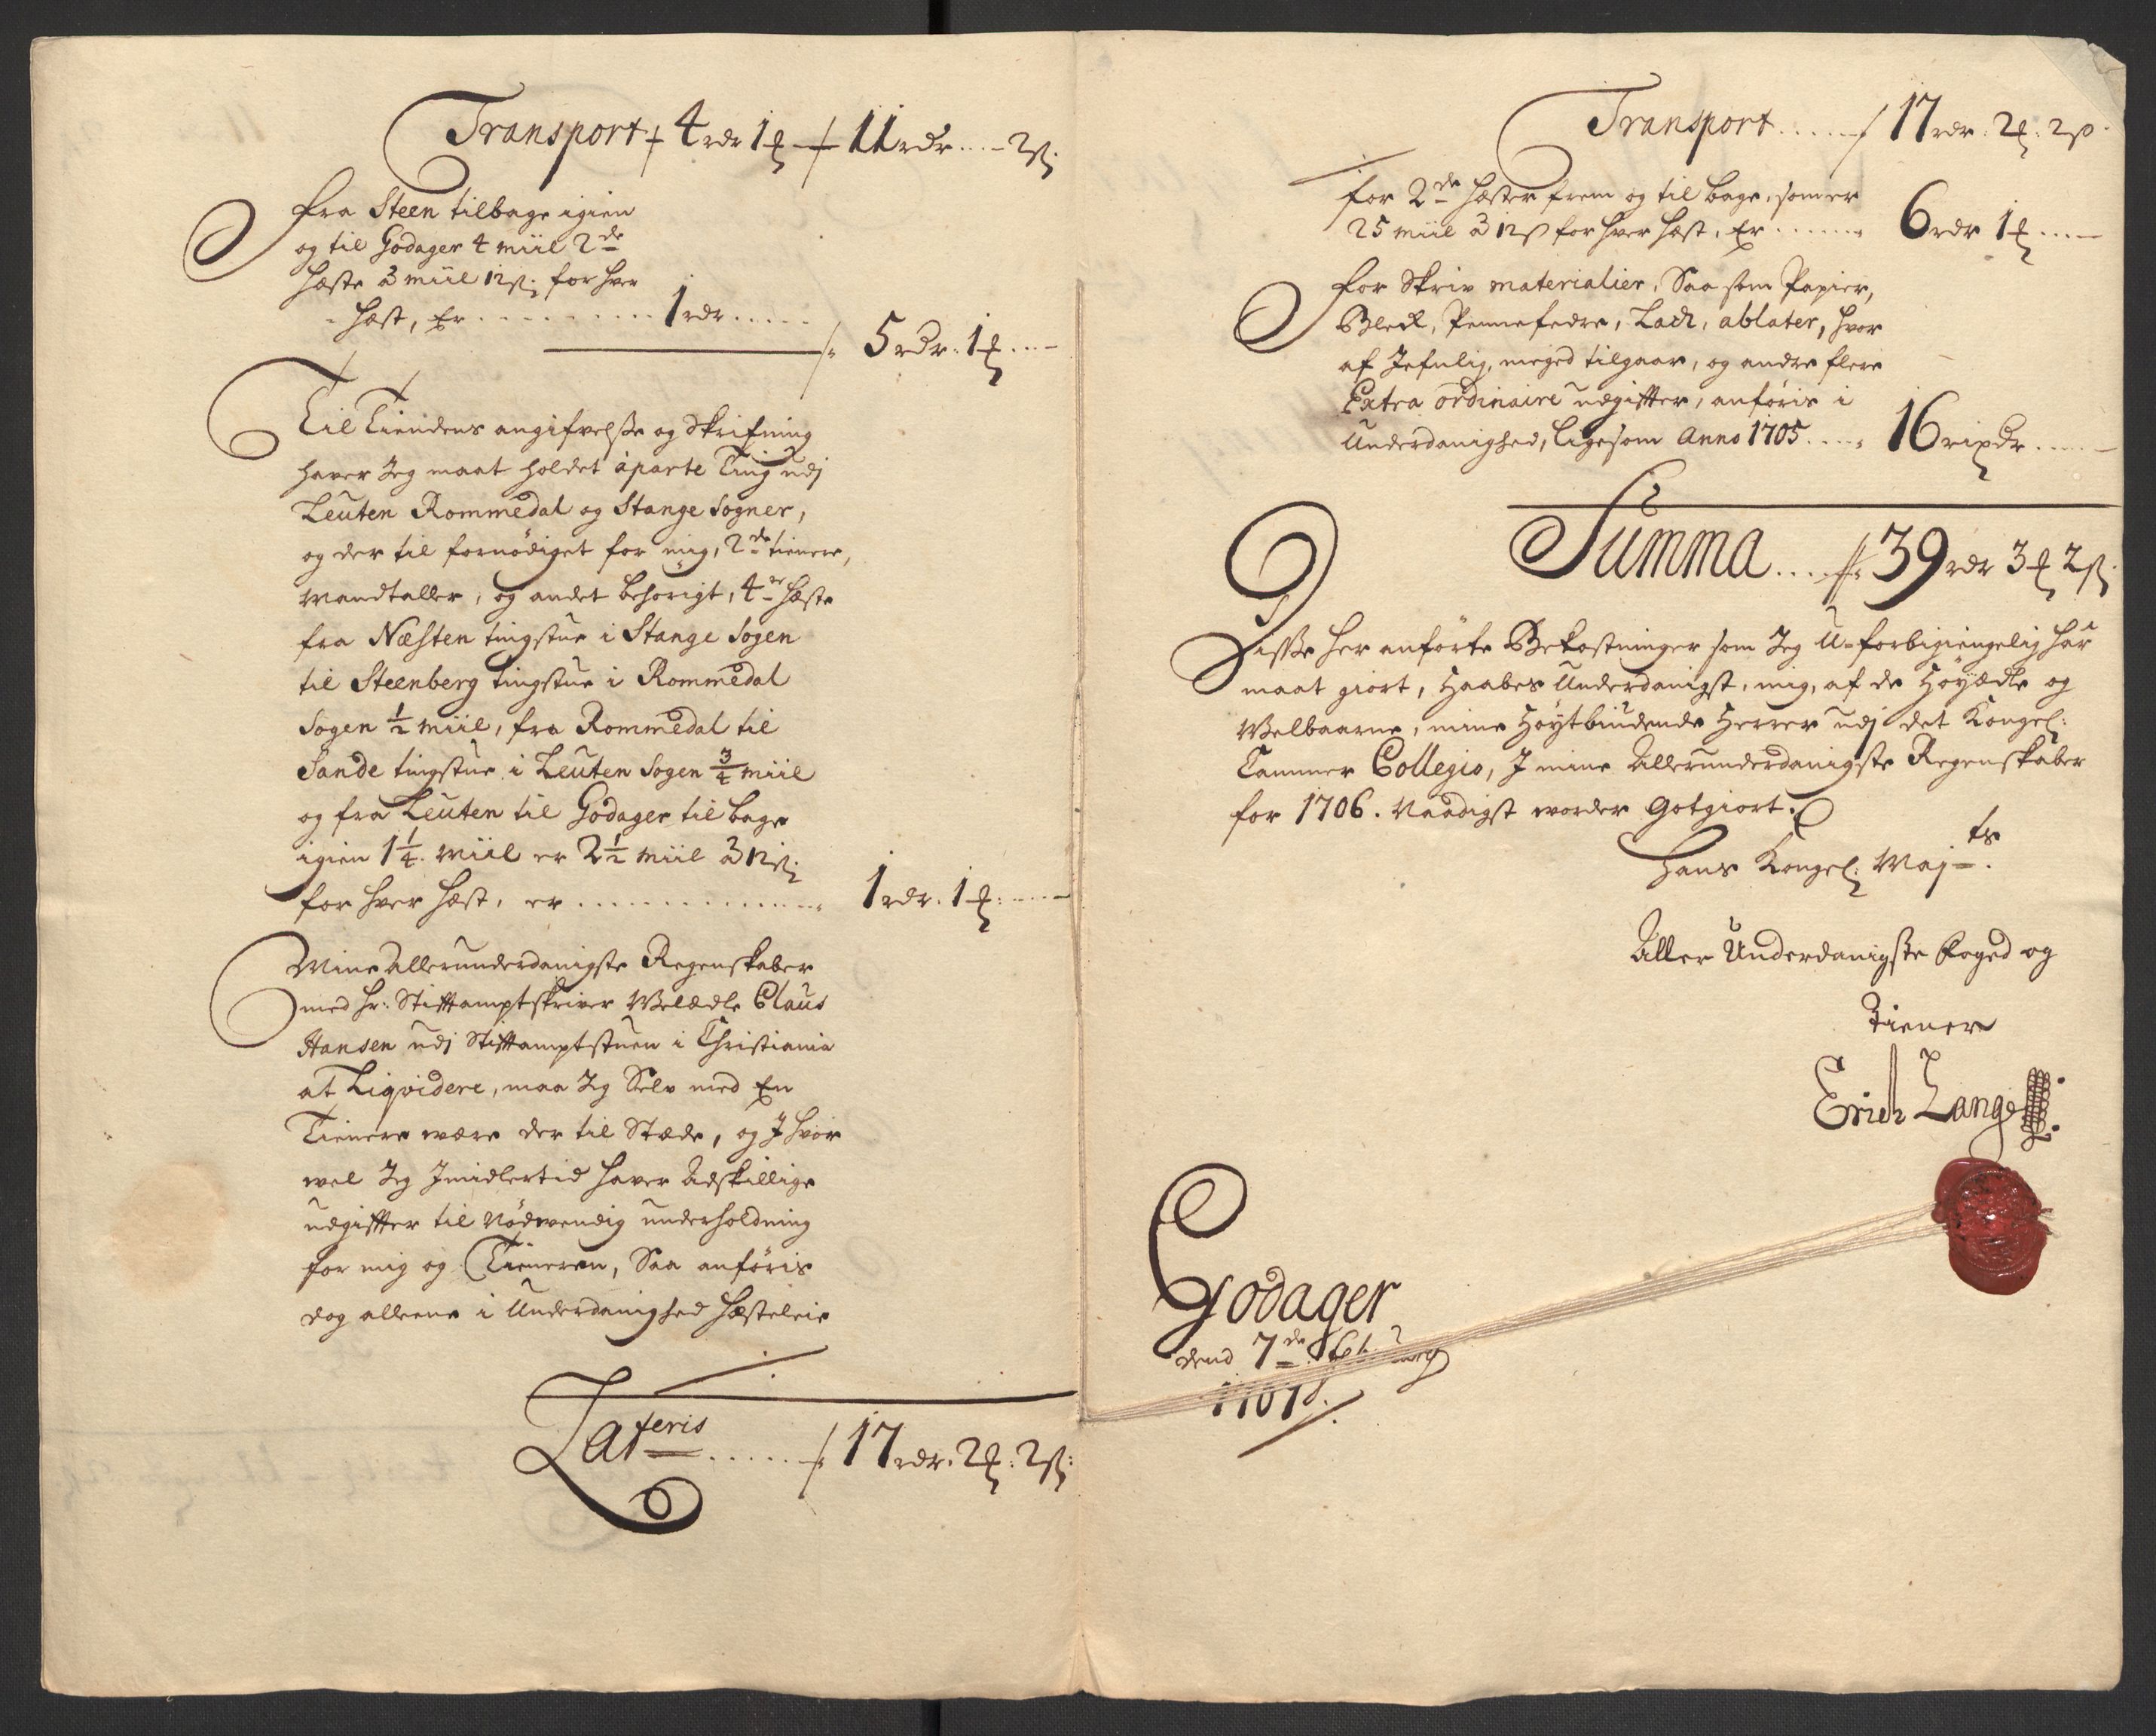 Transport ⨍ 4 rdr 1 ₰ ⨍ 11 rdr .... 2 ß:
fra Steen tilbage igien
og til Godager 4 miil 2de
hæste à miil 12 ß: for hver
hæst, Er ......... 1 rdr .....
5 rdr. 1 ₰ ....
Til Tiendens angifvelße og Skrifning
haver Jeg maat holdet àparte Ting udj
Leuten Rommedal og Stange Sogner,
og der til fornødiget for mig, 2de tienere,
Mandtaller, og andet behörigt, 4re hæste
fra Næsten tingstue i Stange Sogen
til Steenberg tingstue i Rommedal
Sogen ½ miil, fra Rommedal til
Sande tingstue i Leuten Sogen ¾ miil
og fra Leuten til Godager tilbage
igien 1¼ miil er 2½ miil à 12 ß:
for hver hæst, er ............ 1 rdr. 1 ₰: ....
Mine Allerunderdanigste Regenskaber
med Hr: Stiftamptskriver Welædle Claus
Hansen udj Stiftamptstuen i Christiania
at Liqvidere, maa Jeg Selv med En
Tienere være der til Stæde, og J hvor
vel Jeg Jmidlertid haver Adskillige
udgifter til Nødvendig underholdning
for mig og Tieneren, Saa anföris
dog alleene i Underdanighed hæsteleie
Lateris ...... ⨍ 17 rdr. 2 ₰: 2 ß:
Transport ..... ⨍ 17 rdr. 2 ₰: 2 ß.
for 2de hæster frem og til bage, som er
25 miil à 12 ß for hver hæst, Er ...... 6 rdr 1 ₰ ....
for Skriv materialier, Saa som Papier,
Bleck, Pennefedre, Lack, ablater, hvor
af Jefnlig, meged tilgaar, og andre flere
Extra ordinaire udgifter, anföris i
Underdanighed, ligesom Anno 1705 .... 16 rixdr ....
Summa .... 39 rdr 3 ₰ 2 ß:
Disse her anförte Bekostninger som Jeg U-forbigiengelig har
maat giort, Haabes Underdanigst, mig, af de Höyædle og
Velbaarne, mine Höytbiudende Herrer udj det Kongel:
Cammer Collegio, J mine Allerunderdanigste Regenskaber
for 1706. Naadigst vorder Gotgiort.
Hans Kongel: Majts.
Aller Underdanigste Foged og
Tiener
Erich Lange
Godager
dend 7de
1707.